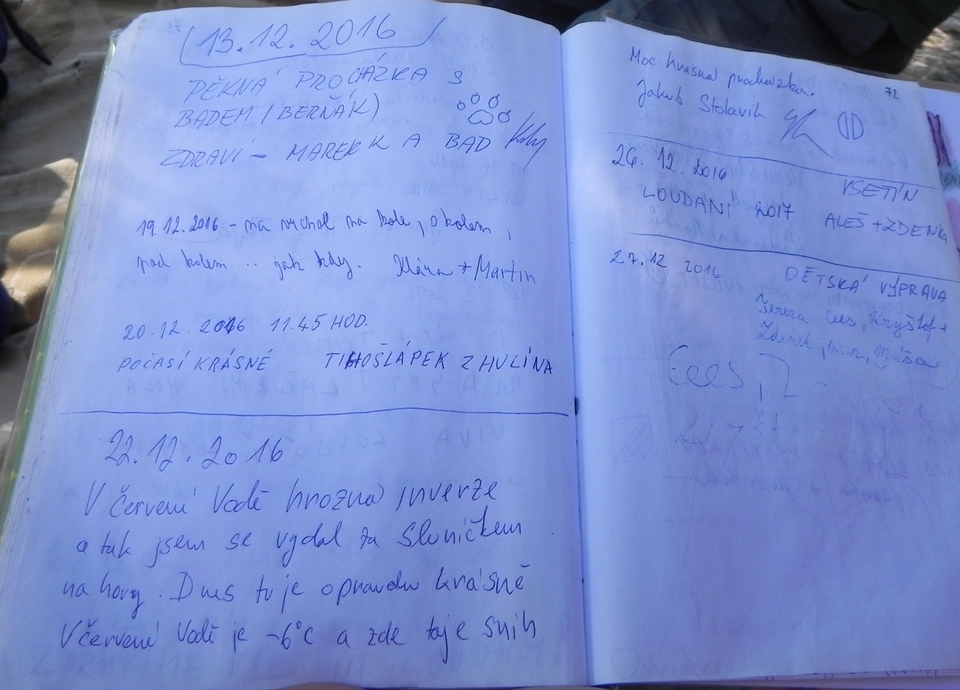 13.12.2016
PĚKNÁ PROCÁZKA S
BADEM (BERŇÁK)
ZDRAVÍ - MAREK K A BAD
19.12.2016 - na vrchol na kole, okolem,
pod kolem... jak kdy. Klára + Martin
20.12.2016 11.45 HOD.
POČASÍ KRÁSNÉ TIHOŠLÁPEK Z HULÍNA
22.12.2016
V Červené Vodě hrozná inverze
a tak jsem se vydal za Sluníčkem
na hory. Dnes tu je opravdu krásně
V Červené Vodě je -6°C a zde taje sníh
72
Moc krásná procházka.
Jakub Stolavik
26.12.2016 VSETÍN
LOUDÁNÍ 2017 ALEŠ + ZDENKA
27.12 2016 DĚTSKÁ VÝPRAVA
Tereza Cees, Kryštof +
Zdenek,
Cees,